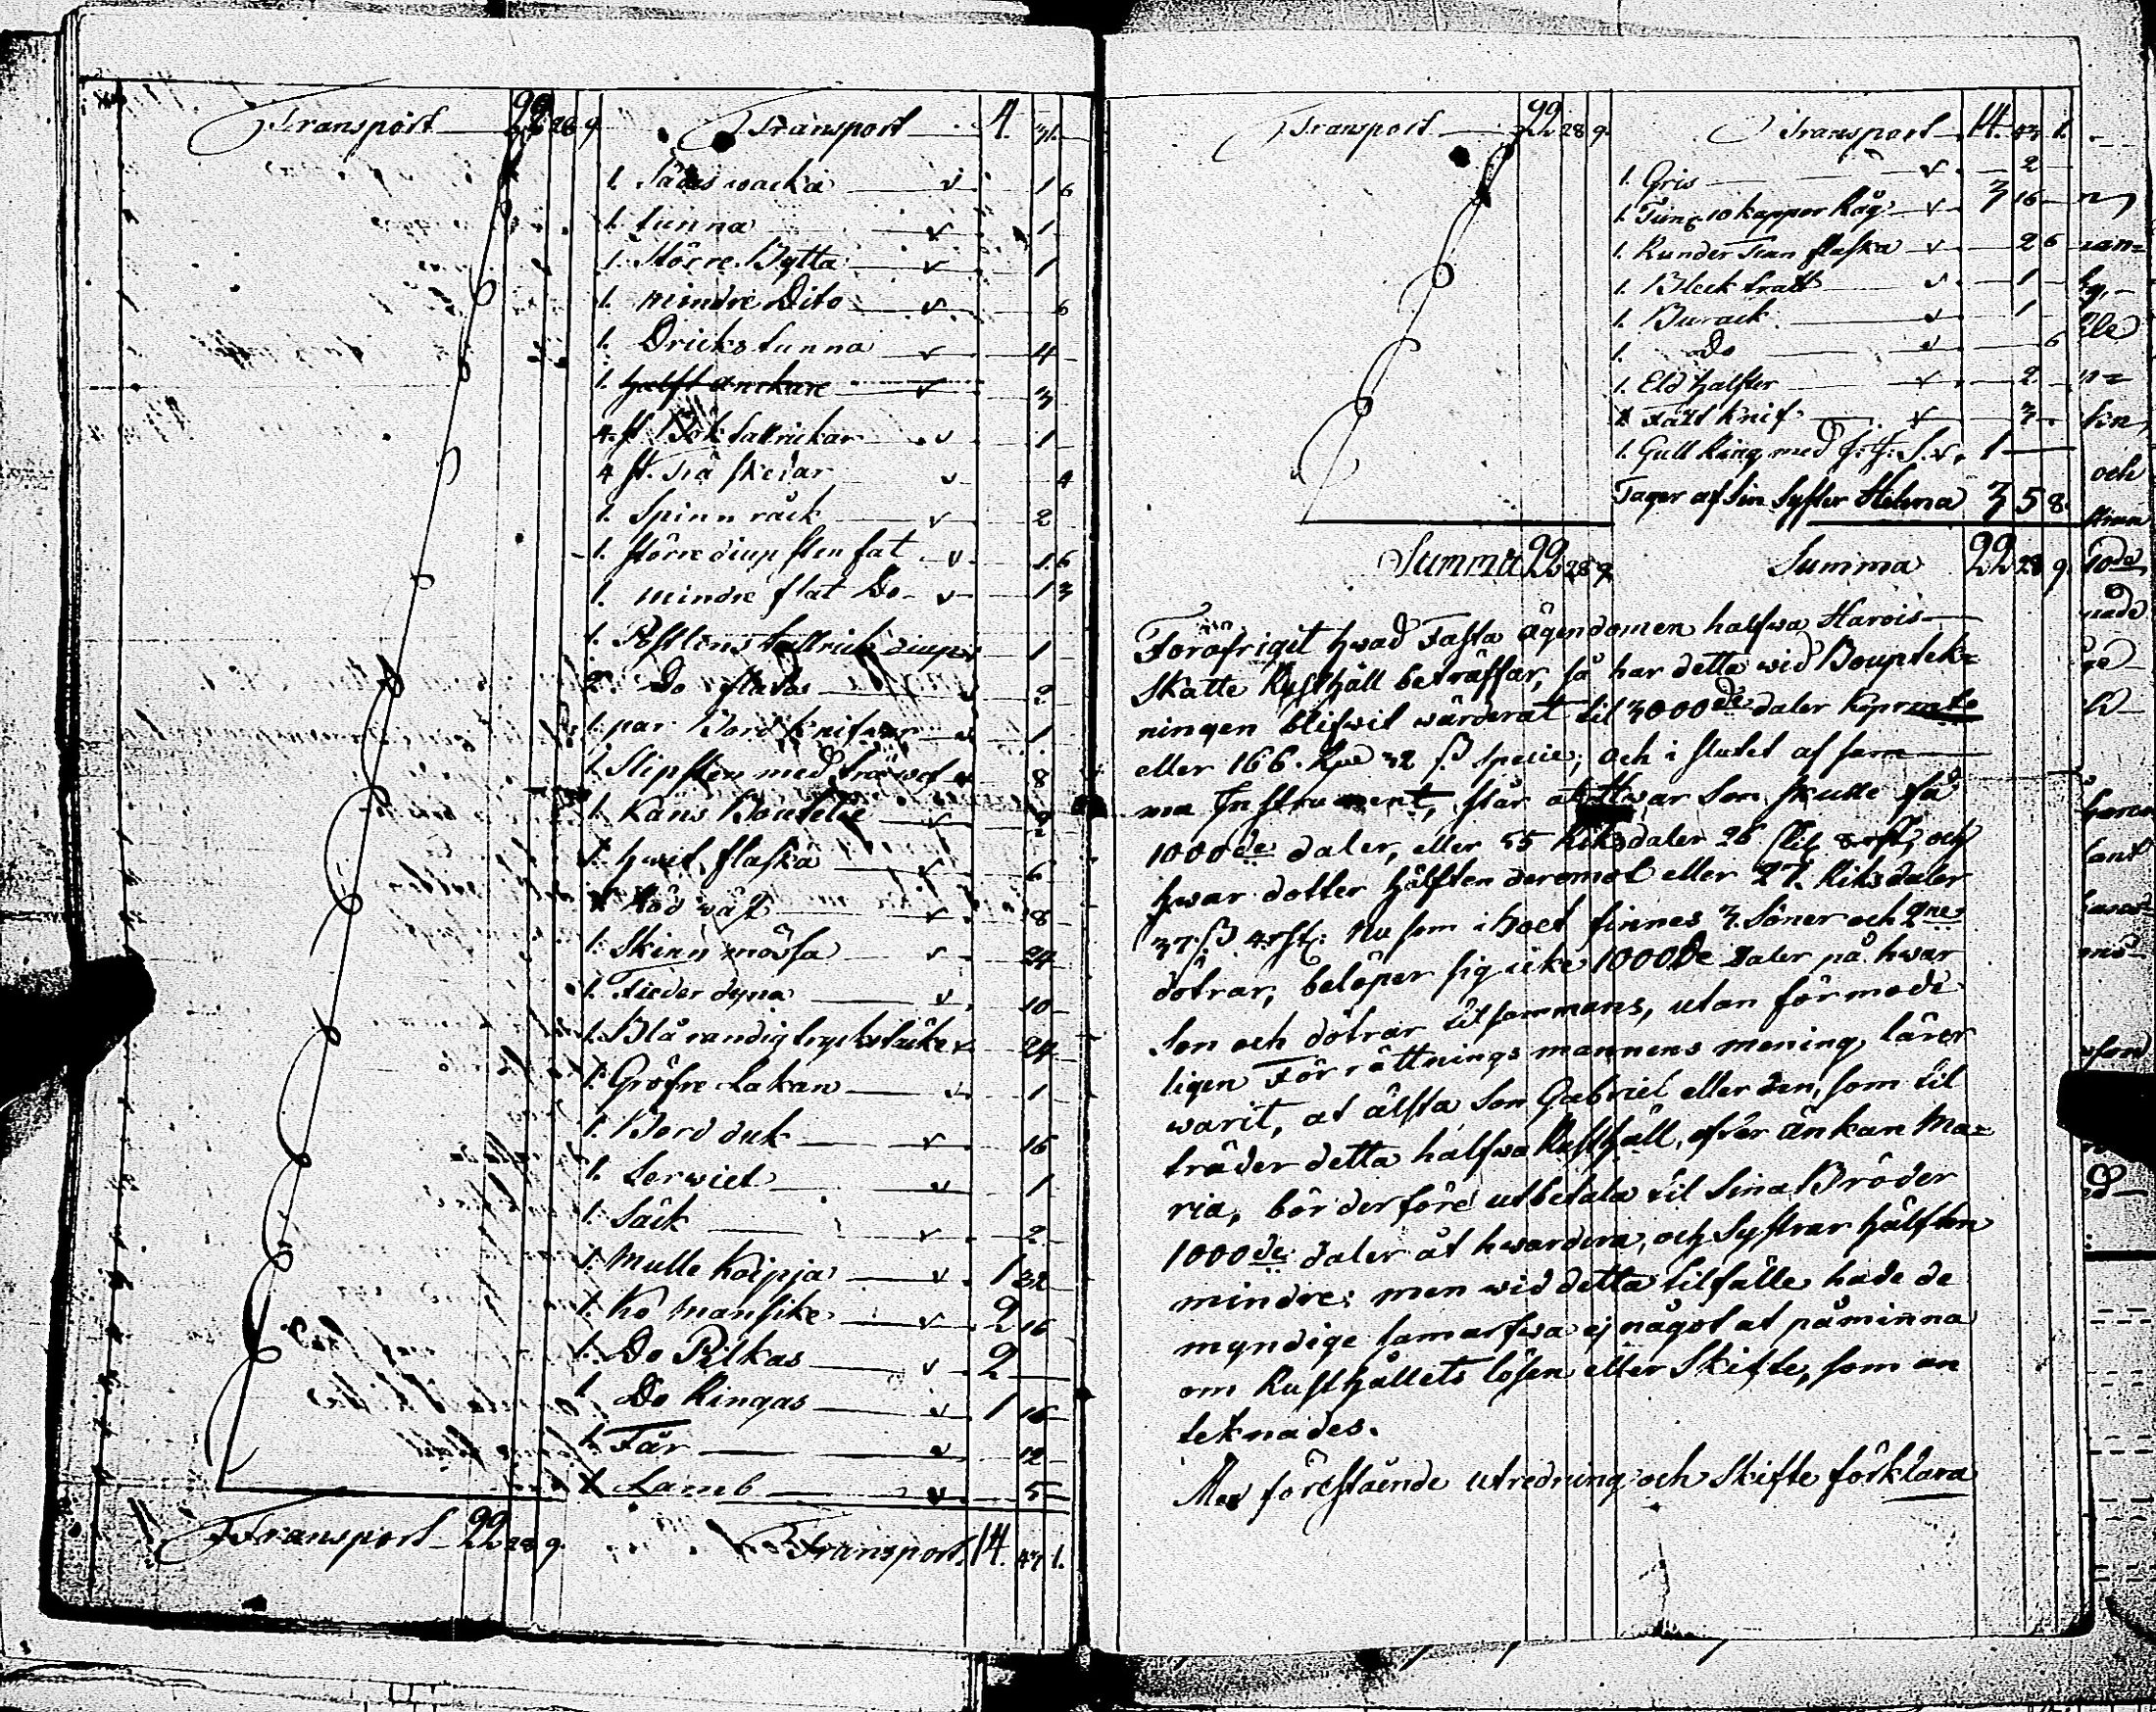 Transport 22 28 9
Transport 4 31
1. Sädes wacka v 1 6
1. tunna v 1
1. Större Bytta v 1
1. mindre Dito v 6
1. Dricks tunna v 4
1. halft anckare v 3
4. st. tallrickar v 1
4 st. Trä skedar v 4
1. Spinn råck v 2
1. större diup sten fat v 1 6
1. mindre flat Do v 1 3
1. Postlens tallrick diup v 1
2. Do flatas v 2
1. par Bord Knifwar v 1
1. Slipsten med träwef v 8
1. Kans Boutelie v 2
1. hwit flaska v 6
1. v 8
1. Skinn mössa v 24
1. Fieder dyna v 10
1. Blå randig täcke v 24
1. Gröfre Lakan v 1
1. Bord duk v 16
1. Serwiet v 1
1. Säck v 2
1. Mulle Koipja v 1 32
1. Ko Mansike v 2 16
1. Do Pilkas v 2
1. Do Ringas v 1 16
1. Får v 12
1. Lamb v 5
Transport 22 28 9
Transport 14 43 1.
Transport 22 28 9
Transport 14. 43 1.
1. Gris v 2
1. Tun 10 kappor Råg v 3 16
1. Runder Tenn flaska v 2 6
1. Bleck tratt v 1
1. Burack v 1
1. Do v 6
1. Eld halster v 2
1 Täll knif v 3
1. Gull Ring med v. 1
Tager af Sin Syster Helena 3 5 8
Summa 22 28 9
Summa 22 28 9.
Föröfrigit hwad Fasta ägendomen halfwa Harois
Skatte Rusthåll beträffar, så har detta wid Bouptek-
ningen blifwit wärderat til 3000 de daler Koprmt
eller 166. Rdr 32 ß specie; och i slutet af sam
ma Instrument, står at hwar Son skulle få
1000 de daler, eller 55 Riksdaler 26 skil 8 rst, och
hwar dotter hälften deremot eller 27. Riksdaler
37 ß 4 rst: Nu som i boet finnes 3 Söner och 2ne
dötrar, belöper sig icke 1000 de Daler på hwar
Son och dötrar tilsammans, utan förmode
ligen Förrättningsmannens mening lärer
warit, at älsta Son Gabriel eller den, som til
träder detta halfwa Rusthåll, efter änkan Ma-
ria, bör derföre utbetala til Sina Bröder
1000 de daler åt hwardera, och Systrar hälften
mindre; men wid detta tilfälle hade de
myndige samarfwa ej något at påminna
om Rusthållets lösen eller Skifte, som an
teknades.
Med förestående utredning och Skifte förklara